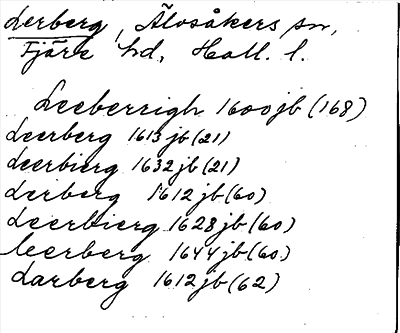 Lerberg, Älvsåkers sn,
Fjäre hd, Hall. l.
Leeberrigh 1600 jb (168)
Leerberg 1613 jb (21)
Leerbierg 1632 jb (21)
Lerberg 1612 jb (60)
Leerbierg 1628 jb (60)
Leerberg 1644 jb (60)
Larberg 1612 jb (62)